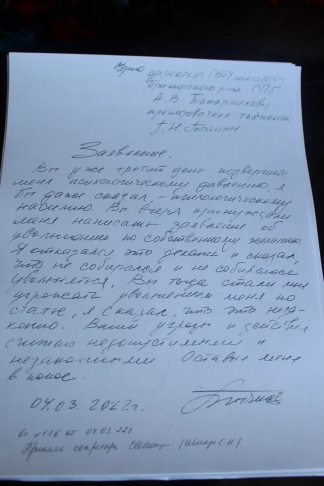 Врио директора ГБОУ
Приморского р-на СПб
А. В. Татарникову
преподавателя технологии
Г. Н.
Заявление.
Вы уже третий день подвергаете
меня психологическому давлению, я
бы даже сказал, - психологическому
насилию. Вы вчера принуждали
меня написать заявление об
увольнении по собственному желанию.
Я отказался это делать и сказал,
что не собирался и не собираюсь
увольняться. Вы тогда стали мне
угрожать увольнением меня по
статье, я сказал, что это неза-
конно. Ваши угрозы и действия
считаю недопустимыми и
незаконными Оставьте меня
в покое.
04.03. 2022г.
04.03.22г.
Приняла секретарь